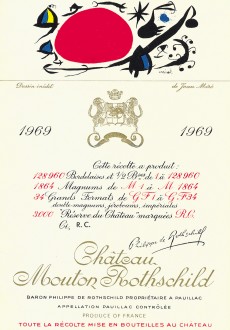 Dessin inédit de Joan Miró
1969 1969
Cette récolte a produit :
128960 Bordelaises et 1/2 Btes de 1 à 128960
1864 Magnums de M 1 à M 1864
34 Grands Formats de G F 1 à G F 34
double-magnums, jeroboams, impériales
3000 "Réserve du Château" marquées R.C.
Ci, R. C.
Philippe de Rothschild
Château
Mouton Rothschild
BARON PHILIPPE DE ROTHSCHILD PROPRIÉTAIRE A PAUILLAC
APPELLATION PAUILLAC CONTRÔLÉE
PRODUCE OF FRANCE
TOUTE LA RÉCOLTE MISE EN BOUTEILLES AU CHÂTEAU